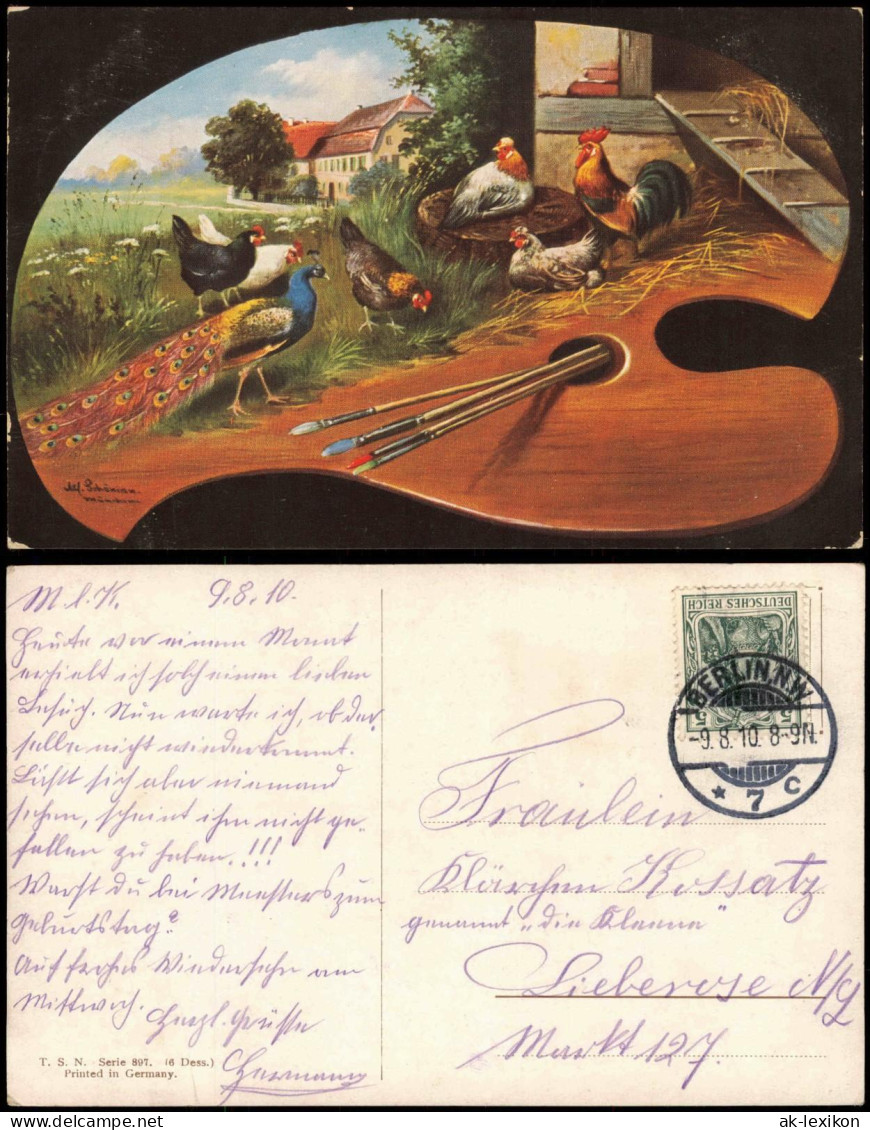 Alf. Schönian.
München
M. l. K. 9.8.10.
Heute vor einem Monat
erhielt ich solch einen lieben
Besuch. Nun warte ich, ob der
selbe nicht wiederkommt.
Läßt sich aber niemand
sehen, scheint ihm nicht ge-
fallen zu haben.!!!
Warst du bei Meesters zum
Geburtstag?
Auf frohes Wiedersehn am
Mittwoch.
Herzl. Grüsse
Hermann
T. S. N. Serie 897. (6 Dess.)
Printed in Germany.
DEUTSCHES REICH
5 5
BERLIN.N.W.
-9.8.10. 8-9N.
* 7 c
Fräulein
Klärchen Kossatz
genannt „die Kleene"
Lieberose N/L
Markt 127.
ak-lexikon